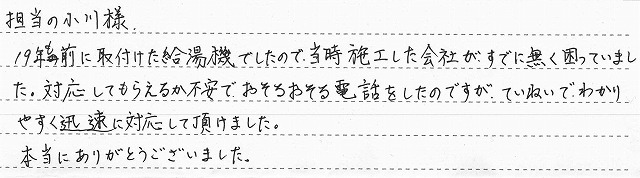 担当の小川様.
19年前に取付けた給湯機でしたので、当時施工した会社が、すでに無く困っていまし
た。対応してもらえるか不安で、おそるおそる電話をしたのですが、ていねいでわかり
やすく迅速に対応して頂けました。
本当にありがとうございました。